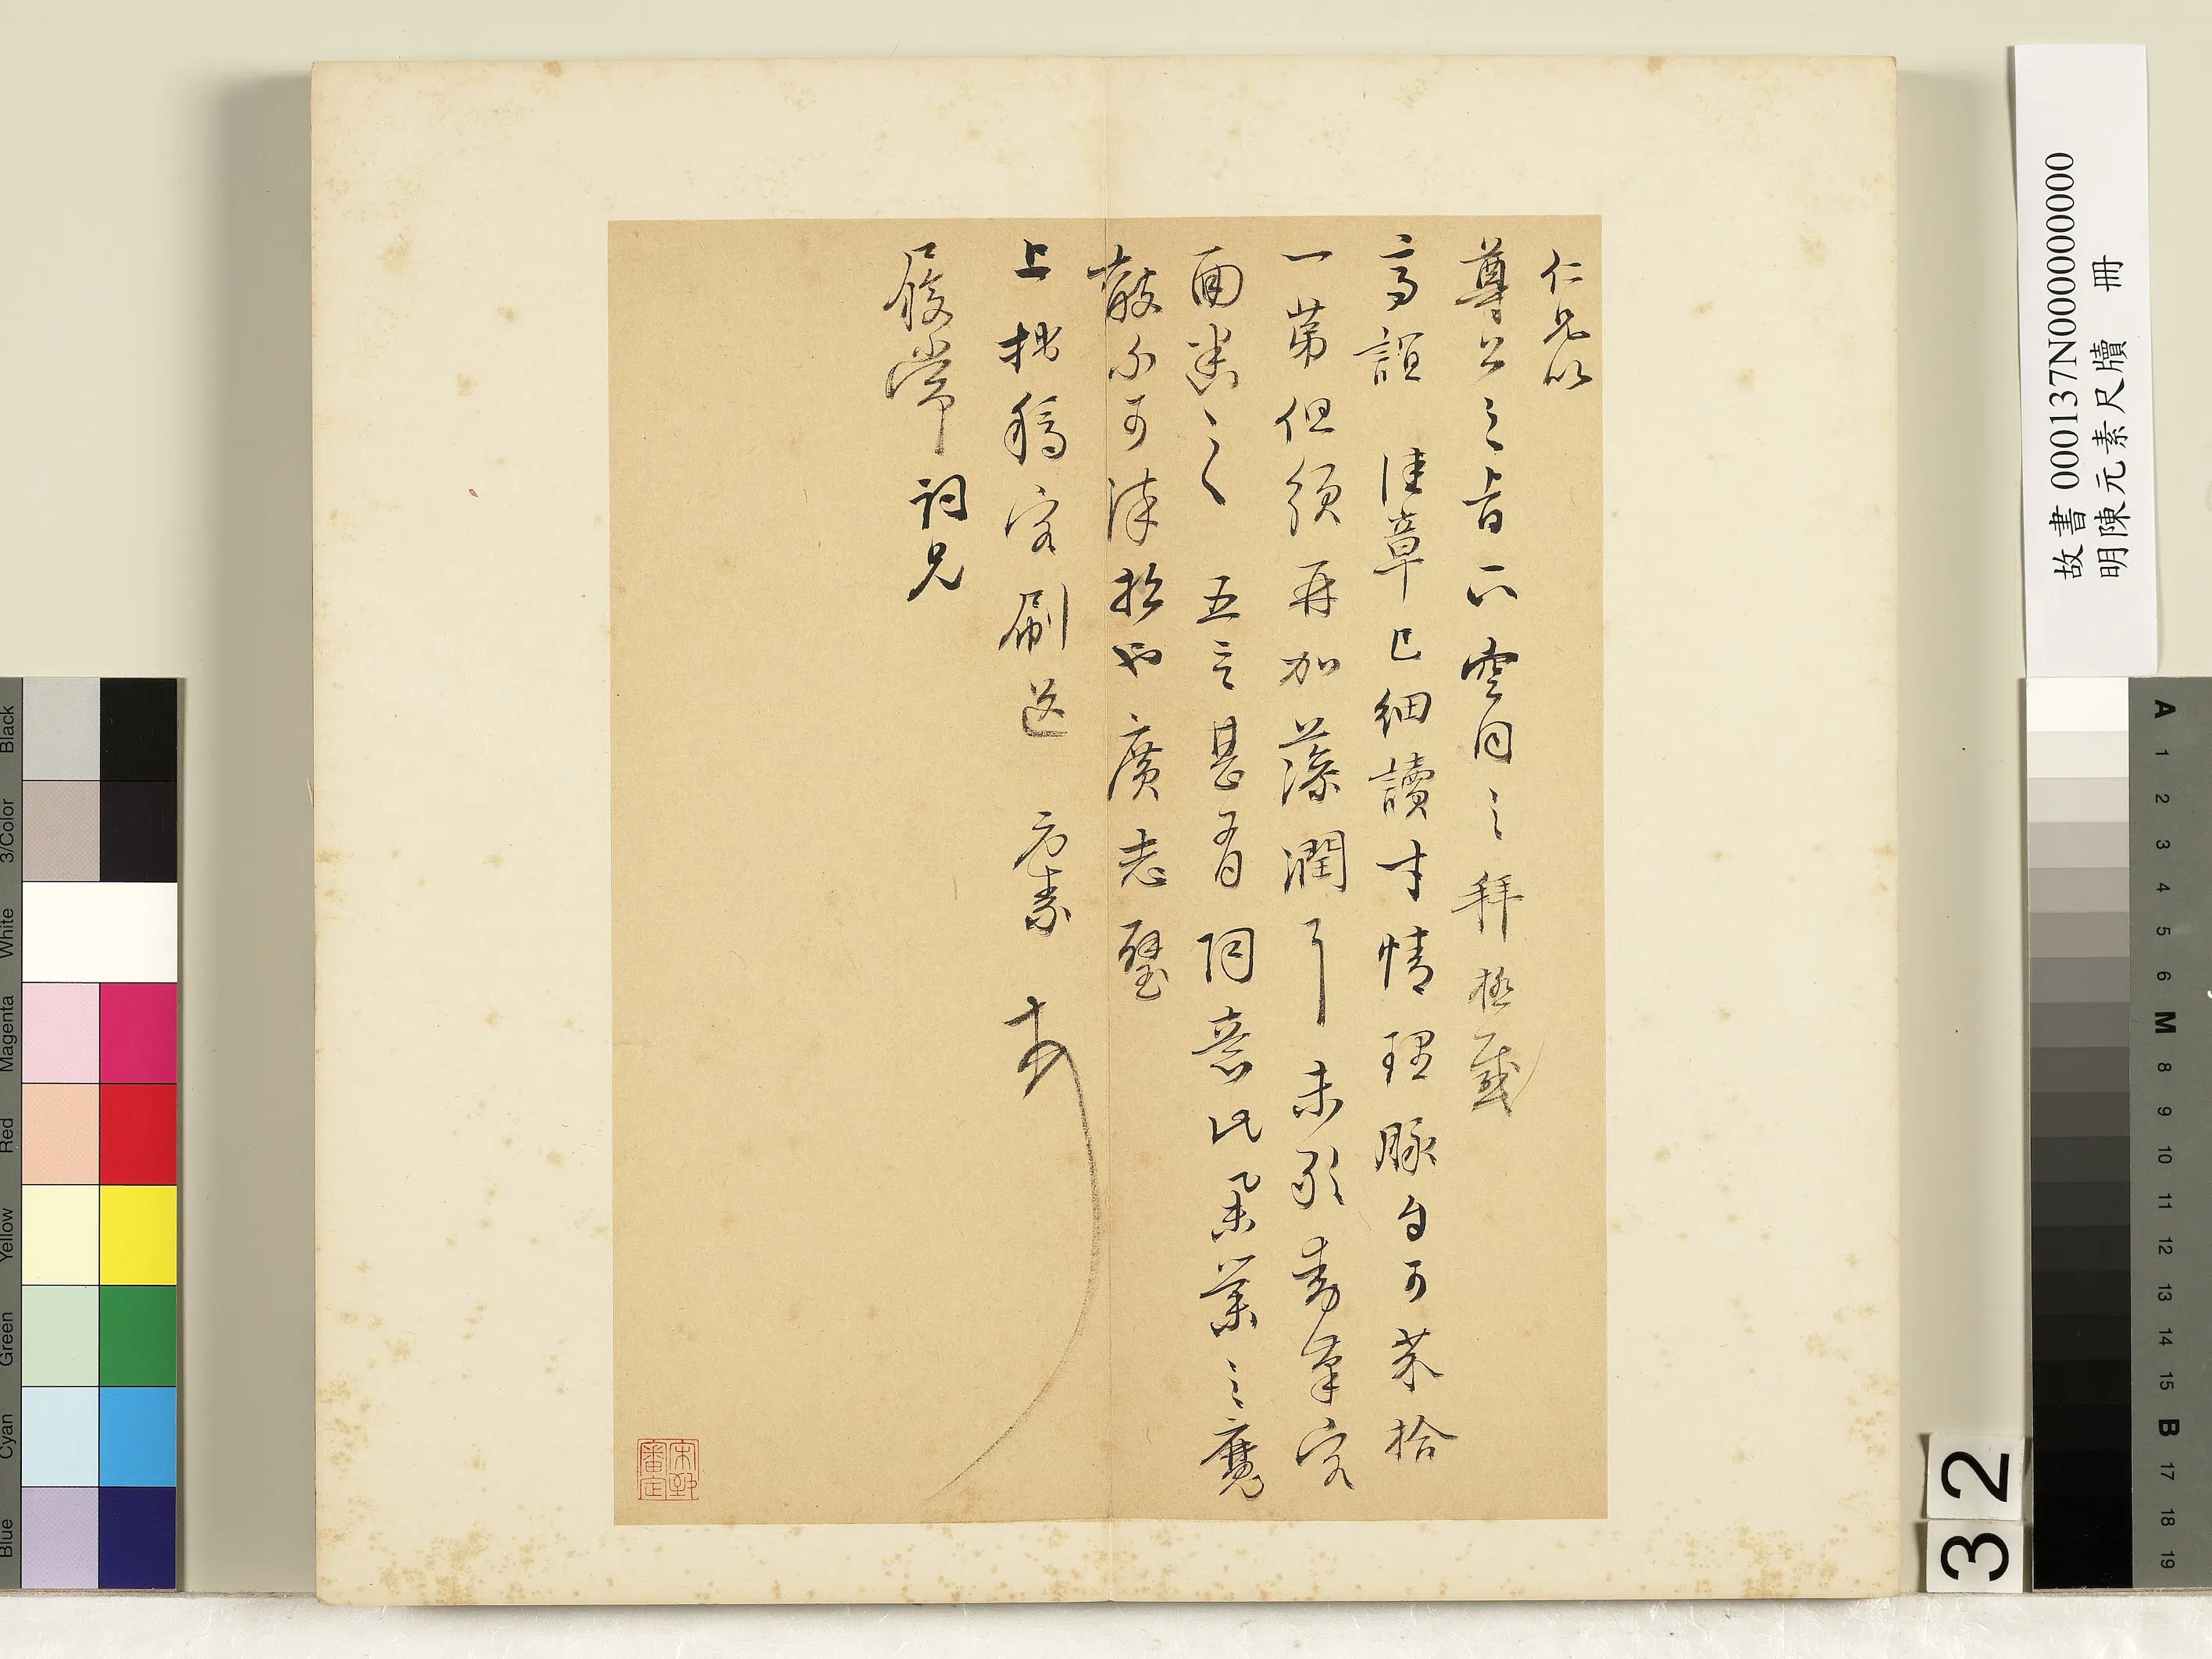 仁兄以
尊公之旨下空同之拜極感
高誼 佳章已細讀才情理脈自可芥拾
一第但須再加藻潤耳未敢動筆容
面悉之 五言甚有同意此舉業之魔
散不可深於也廣志璧
上拙稿容刷送 元素
履常詞兄
故書 000137N000000000
明陳元素尺牘 冊
32
Black
3/Color
White
Magenta
Red
Yellow
Green
Cyan
Blue
A 1 2 3 4 5 6 M 8 9 10 11 12 13 14 15 B 17 18 19